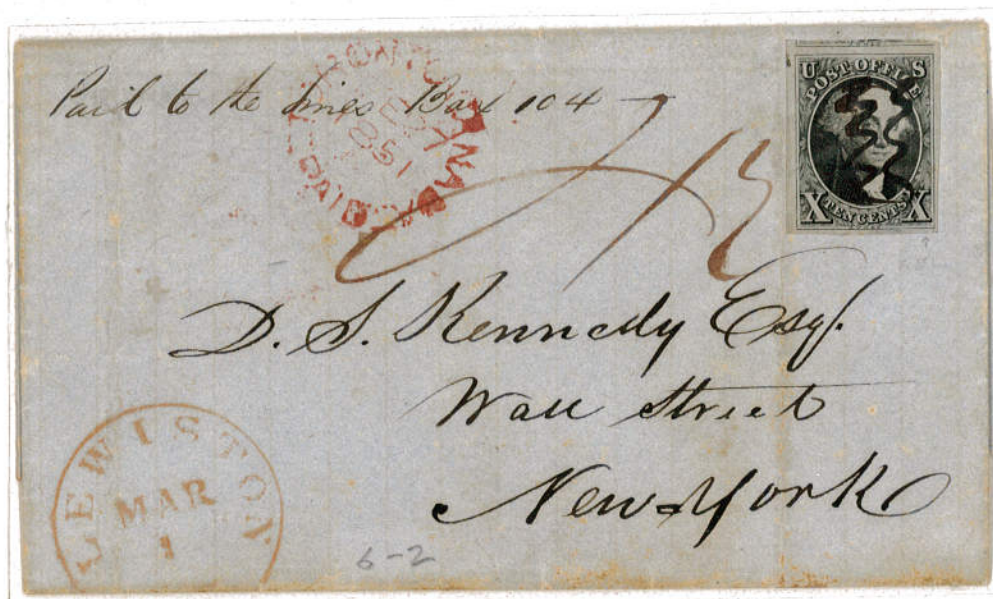 Paid to the lines Box 104
TORONTO CANADA
1851
U POST OFFICE S
X TEN CENTS X
D. S. Kennedy Esq.
Wall Street
New York
LEWISTON
MAR
1
6-2